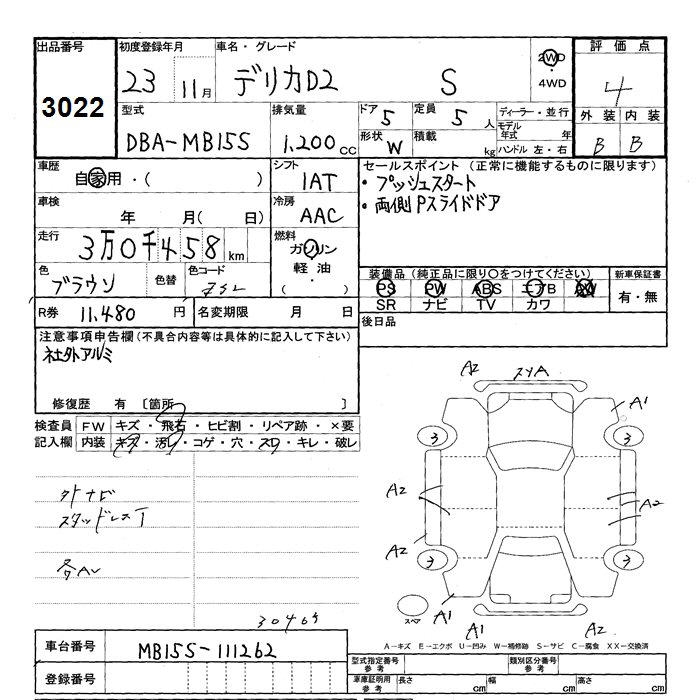 出品番号
3022
初度登録年月
23 11月
車名・グレード
デリカD2 S
2WD
・
4WD
評価点
4
外装 内装
B B
型式
DBA-MB15S
排気量
1,200cc
ドア
5
定員
5人
形状
W
積載
kg
ディーラー・並行
モデル年式 年
ハンドル 左・右
車歴
自家用・( )
シフト
IAT
車検
年 月( 日)
冷房
AAC
走行
3万0千458km
燃料
ガソリン
軽油・
( )
色
ブラウン
色替
色コード
ZSL
R券 11,480円
名変期限 月 日
セールスポイント(正常に機能するものに限ります)
・プッシュスタート
・両側Pスライドドア
装備品(純正品に限り○をつけてください)
PS PW ABS エアB AW
SR ナビ TV カワ
新車保証書
有・無
後日品
注意事項申告欄(不具合内容等は具体的に記入して下さい)
社外アルミ
修復歴 有 〔箇所 〕
検査員記入欄
FW キズ・飛石・ヒビ割・リペア跡・×要
内装 キズ・汚れ・コゲ・穴・スレ・キレ・破レ
外ナビ
スタッドレスT
各AU
30465
A2 スリA
A1
3 3
A2 A2
A2
3 3
A1 A1 A2
スペア
A－キズ E－エクボ U－凹み W－補修跡 S－サビ C－腐食 XX－交換済
車台番号
MB15S-111262
登録番号
型式指定番号
参考
類別区分番号
参考
車庫証明用
参考
長さ cm 幅 cm 高さ cm